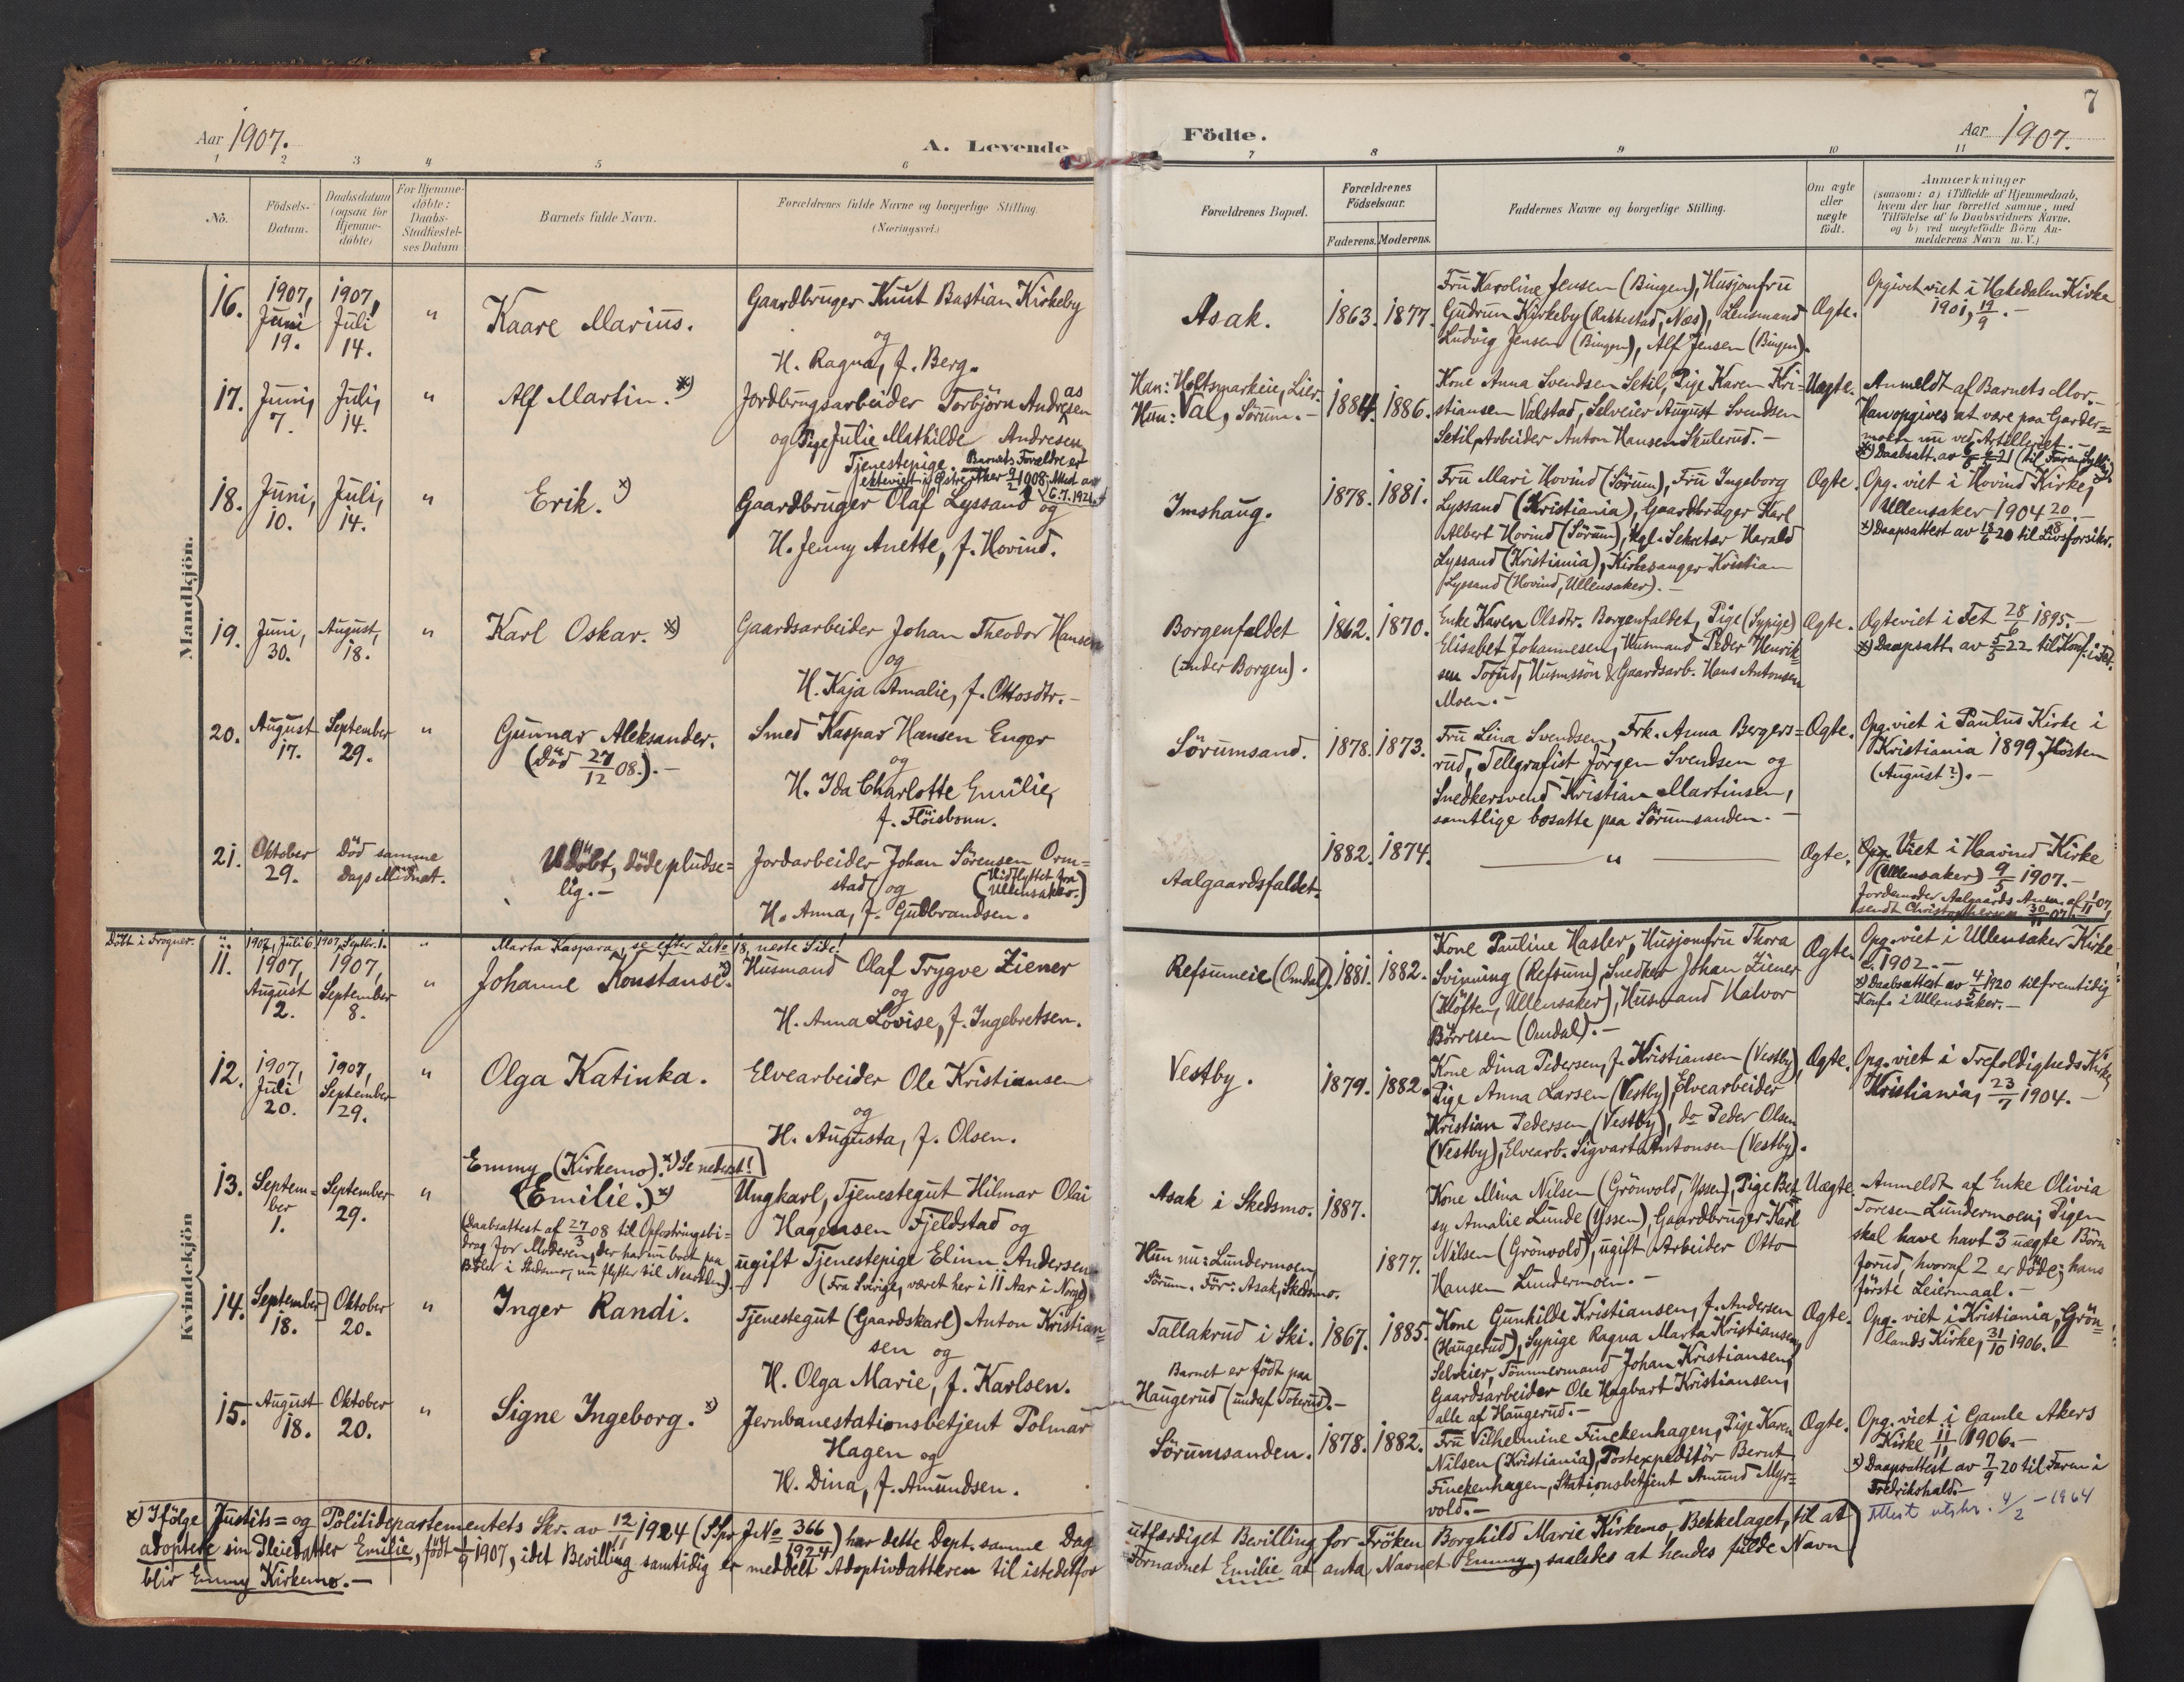 Aar 1907.
A. Levende
1 2 3 4 5 6
No.
Födsels-
Datum.
Daabsdatum
(ogsaa for
Hjemme-
döbte)
For Hjemme-
döbte:
Daabs-
Stadfæstel-
ses Datum
Barnets fulde Navn.
Forældrenes fulde Navne og borgerlige Stilling.
(Næringsvei.)
Mandkjön.
16. 1907, Juni 19. 1907, Juli 14. " Kaare Marius.
Gaardbruger Knut Bastian Kirkeby
og
H. Ragna, f. Berg.
17. Juni, 7. Juli, 14. " Alf Martin. x)
Jordbrugsarbeider Torbjörn Andresen
as
og Pige Julie Mathilde Andresen,
Tjenestepige. Barnets Forældre er
ekteviet i Østre Aker 9/2 1908. Attest av
6.7.1921
18. Juni, 10. Juli, 14. " Erik. x)
Gaardbruger Olaf Lyssand og
H. Jenny Anette, f. Hovind.
19. Juni, 30. August, 18. " Karl Oskar. x)
Gaardsarbeider Johan Theodor Hansen
og
H. Kaja Amalie, f. Ottosdtr.-
20. August 17. September 29. " Gunnar Aleksander.
(Död 27/12 08.).-
Smed Kaspar Hansen Enger
og
H. Ida Charlotte Emilie,
f. Flöisbonn.
21. Oktober 29. Död samme
Dags Midnat.
Udöbt, döde pludse=
lig.-
Jordarbeider Johan Sörensen Orm=
stad og (Indflyttet fra
Ullensaker.)
H. Anna, f. Gudbrandsen.
Döbt i Frogner. " 1907, Juli 6. 1907, Septbr. 1. " Marta Kaspara, se efter No 18, neste Side!
Kvindekjön
11. 1907, August 2. 1907, September 8. " Johanne Konstanse. x)
Husmand Olaf Trygve Ziener
og
H. Anna Lovise, f. Ingebretsen.
12. 1907, Juli 20. 1907, September 29. " Olga Katinka.
Elvearbeider Ole Kristiansen
og
H. Augusta, f. Olsen.
Emmy (Kirkemo). x) Se nederst!
13. Septem=
ber
1. September 29. " (Emilie.) x)
(Daabsattest af 27/3 08 til Opfostringsbi=
drag for Moderen, der har nu boet paa
Böler i Skedsmo, nu flytter til Nesodden).
Ungkarl, Tjenestegut Hilmar Olai
Hagensen Fjeldstad og
ugift Tjenestepige Elinn Andersen
(Fra Sverige, været her i 11 Aar i Norge)
14. September 18. Oktober 20. " Inger Randi.
Tjenestegut (Gaardskarl) Anton Kristian=
sen og
H. Olga Marie, f. Karlsen.
15. August 18. Oktober 20. " Signe Ingeborg. x)
Jernbanestationsbetjent Polmar
Hagen og
H. Dina, f. Amundsen.
x) Ifölge Justits= og Politidepartementets Skr. av 12/11 1924 (JNo 366/1924) har dette Dept. samme Dag
adoptere sin Pleiedatter Emilie, født 1/9 1907, idet Bevilling samtidig er meddelt Adoptivdatteren til istedetfor
blir Emmy Kirkemo.-
7
Födte.
Aar 1907.
7 8 9 10 11
Forældrenes Bopæl.
Forældrenes
Födselsaar.
Faderens. Moderens.
Faddernes Navne og borgerlige Stilling.
Om ægte
eller
uægte
födt.
Anmærkninger
(saasom: a) i Tilfælde af Hjemmedaab,
hvem der har forrettet samme, med
Tilföielse af to Daabsvidners Navne,
og b) ved uægtefödte Börn An-
melderens Navn m. V.)
Asak. 1863. 1877.
Fru Karoline Jensen (Bingen), Husjomfru
Gudrun Kirkeby (Rakkestad, Næs), Lensmand
Ludvig Jensen (Bingen), Alf Jensen (Bingen).
Ægte.
Opgivet viet i Hakedalen Kirke
1901, 19/9.-
Han: Holtsmarkeie, Lier.
Hun: Val, Sörum.- 1884. 1886.
Kone Anna Svendsen Setil, Pige Karen Kri=
stiansen Valstad, Selveier August Svendsen
Setil, Arbeider Anton Hansen Skulerud.-
Uægte.
Anmeldt af Barnets Mor.-
Han opgives at være paa Garder=
moen nu ved Artilleriet.-
Imshaug. 1878. 1881.
Fru Mari Hovind (Sörum), Fru Ingeborg
Lyssand (Kristiania), Gaardbruger Karl
Albert Hovind (Sörum), Kgl. Sekretær Harald
Lyssand (Kristiania), Kirkesanger Kristian
Lyssand (Hovind, Ullensaker).-
Ægte.
Opg. viet i Hovind Kirke,
Ullensaker 1904 20/8.-
x) Daapsattest av 18/6 20 til Livsforsikr.
Borgenfaldet
(under Borgen). 1862. 1870.
Enke Karen Olsdtr. Borgenfaldet, Pige (Sypige)
Elisabet Johannesen, Husmand Peder Henrik=
sen Torud, Husmssön & Gaardsarb. Hans Antonsen
Moen.-
Ægte.
Ægteviet i Fet 28/6 1895.-
x) Daapsatt. av 5/5 22 til Konf. i Fet.
Sörumsand. 1878. 1873.
Fru Lina Svendsen, Frk. Anna Bergers=
rud, Tellgrafist Jörgen Svendsen og
Snedkersvend Kristian Martinsen,
samtlige bosatte paa Sörumsanden.-
Ægte.
Opg. viet i Paulus Kirke i
Kristiania 1899, Hösten
(August?).-
Aalgaardsfaldet. 1882. 1874. "
Ægte.
Opg. Viet i Haavind Kirke
(Ullensaker) 9/5 1907.-
Refsumeie (Omdal). 1881. 1882.
Kone Pauline Hasler, Husjomfru Thora
Svinning (Refsum), Snedker Johan Ziener
(Klöften, Ullensaker), Husmand Halvor
Börresen (Omdal).-
Ægte.
Opg. viet i Ullensaker Kirke
c. 1902.-
x) Daabsattest av 4/5 1920 til fremtidig
Konf. i Ullensaker.-
Vestby. 1879. 1882.
Kone Dina Pedersen, f. Kristiansen (Vestby),
Pige Anna Larsen (Vestby), Elvearbeider
Kristian Pedersen (Vestby), do Peder Olsen
(Vestby), Elvearb. Sigvart Antonsen (Vestby).
Ægte.
Opg. viet i Trefoldigheds Kirke,
Kristiania, 23/7 1904.-
Asak i Skedsmo. 1887.
Hun nu: Lundermoen,
Sörum. För: Asak, Skedsmo. 1877.
Kone Mina Nilsen (Grönvold, Yssen), Pige Bet=
sy Amalie Lunde (Yssen), Gaardbruger Karl
Nilsen (Grönvold), ugift Arbeider Otto
Hansen Lundermoen.-
Uægte.
Anmeldt af Enke Olivia
Toresen Lundermoen; Pigen
skal have havt 3 uægte Börn
forud, hvoraf 2 er döde; hans
förste Leiermaal.-
Tallakrud i Ski. 1867. 1885.
Barnet er födt paa
Haugerud
Kone Gunhilde Kristiansen, f. Andersen
(Haugerud), Sypige Ragna Marta Kristiansen,
Selveier, Tömmermand Johan Kristiansen,
Gaardsarbeider Ole Hagbart Kristiansen,
alle af Haugerud.-
Ægte.
Opg. viet i Kristiania, Grön=
lands Kirke, 31/10 1906.-
Sörumsanden. 1878. 1882.
Fru Vilhelmine Finckenhagen, Pige Karen
Nilsen (Kristiania), Postexpeditör Bernt
Finckenhagen, Stationsbetjent Amund Myr=
vold.-
Ægte.
Opg. viet i Gamle Akers
Kirke 11/11 1906.-
x) Daapsattest av 7/9 20 til Faren i
Fredrikshald.-
Attest utskr. 4/2 - 1964
utfærdiget Bevilling for Fröken Borghild Marie Kirkemo, Bekkelaget, til at
Fornavnet Emilie at anta Navnet Emmy, saaledes at hendes fulde Navn